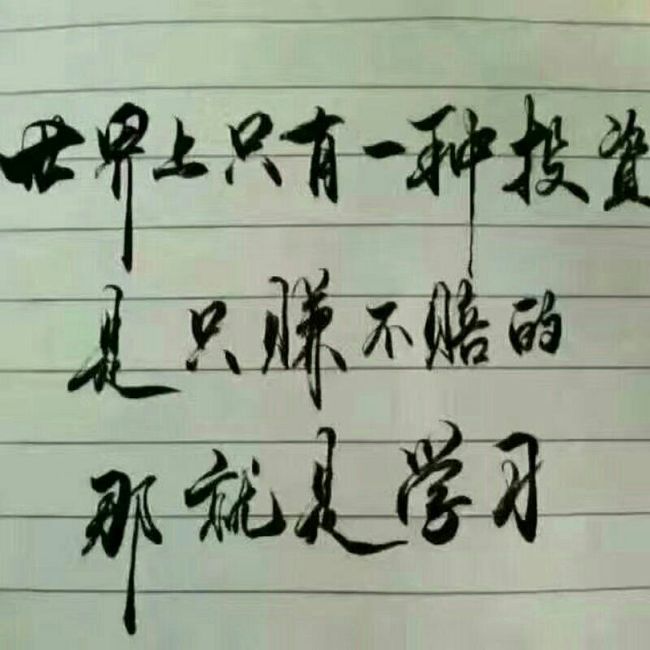 世界上只有一种投资
是只赚不赔的
那就是学习